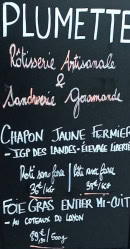 PLUMETTE
Rôtisserie Artisanale
&
Sandwicherie Gourmande
CHAPON JAUNE FERMIER
- IGP DES LANDES - ÉLEVAGE LIBERTÉ
Prêt sans farce / Prêt avec farce
FOIE GRAS ENTIER MI-CUIT
- AU COTEAUX DU LAYON
/ 500g